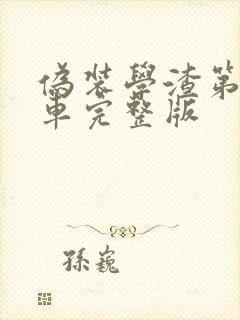 偽装學渣第
車完整版
孫巍